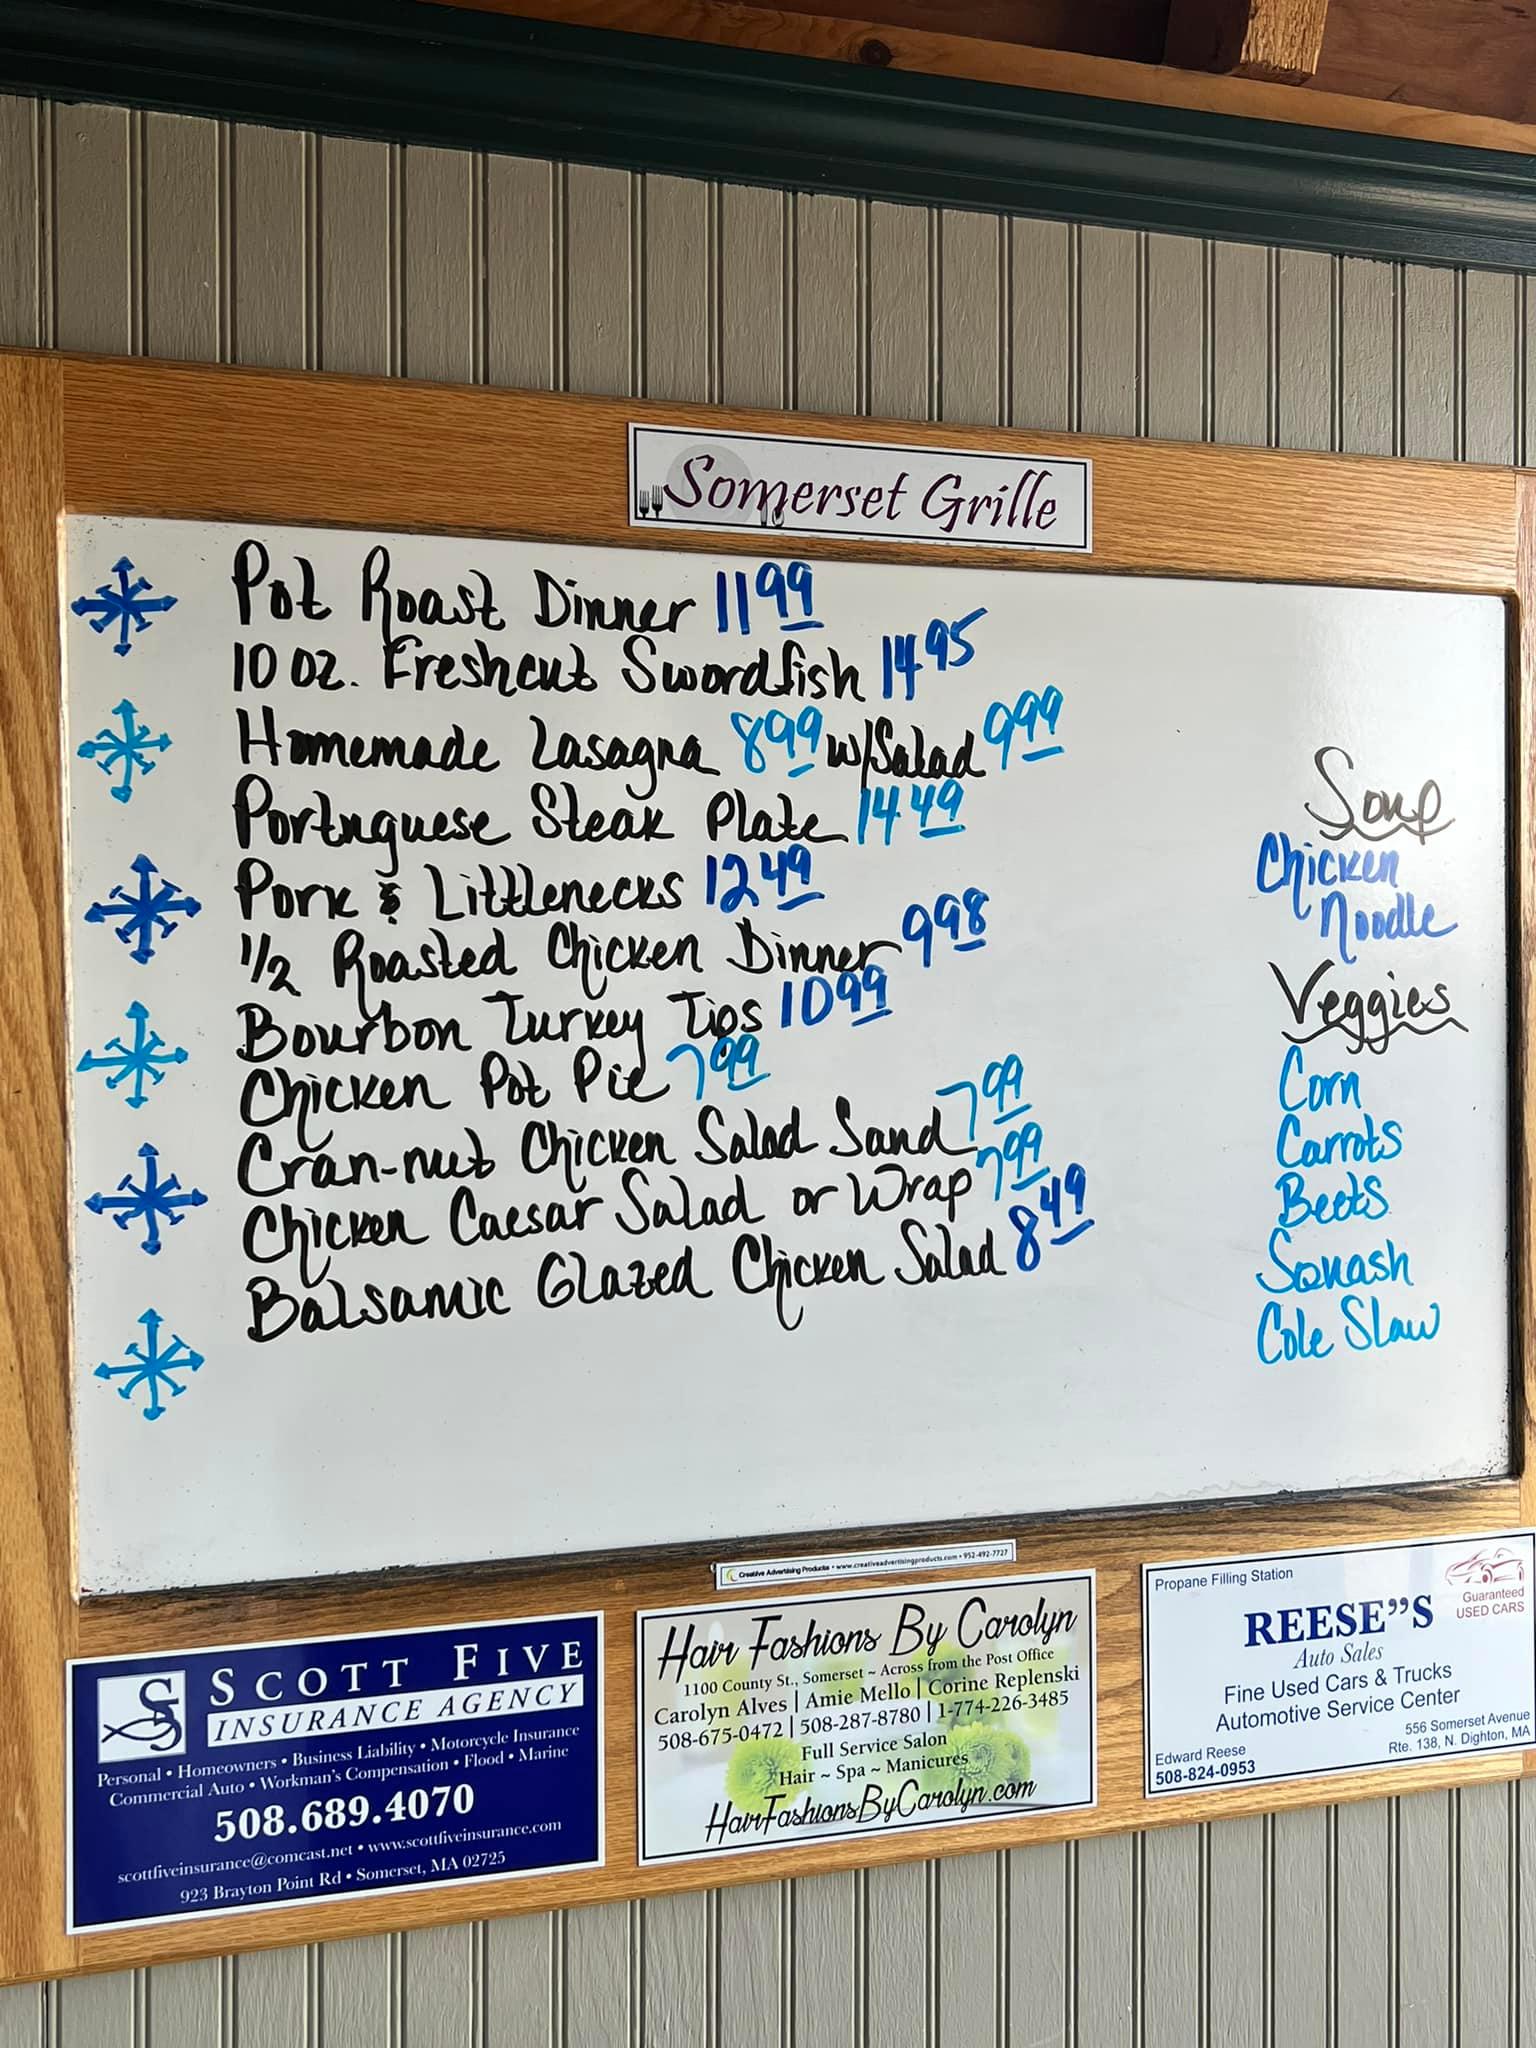 Somerset Grille
Pot Roast Dinner 11 99
10 oz. Freshcut Swordfish 14 95
Homemade Lasagna 8 99 w/Salad 9 99
Portuguese Steak Plate 14 49
Pork & Littlenecks 12 49
1/2 Roasted Chicken Dinner 9 98
Bourbon Turkey Tips 10 99
Chicken Pot Pie 7 99
Cran-nut Chicken Salad Sand 7 99
Chicken Caesar Salad or Wrap 7 99
Balsamic Glazed Chicken Salad 8 49
Soup
Chicken
Noodle
Veggies
Corn
Carrots
Beets
Squash
Cole Slaw
Creative Advertising Products • www.creativeadvertisingproducts.com • 952-492-7727
SCOTT FIVE
INSURANCE AGENCY
Personal • Homeowners • Business Liability • Motorcycle Insurance
Commercial Auto • Workman's Compensation • Flood • Marine
508.689.4070
scottfiveinsurance@comcast.net • www.scottfiveinsurance.com
923 Brayton Point Rd • Somerset, MA 02725
Hair Fashions By Carolyn
1100 County St., Somerset ~ Across from the Post Office
Carolyn Alves | Amie Mello | Corine Replenski
508-675-0472 | 508-287-8780 | 1-774-226-3485
Full Service Salon
Hair ~ Spa ~ Manicures
HairFashionsByCarolyn.com
Propane Filling Station
Guaranteed
USED CARS
REESE”S
Auto Sales
Fine Used Cars & Trucks
Automotive Service Center
556 Somerset Avenue
Rte. 138, N. Dighton, MA
Edward Reese
508-824-0953